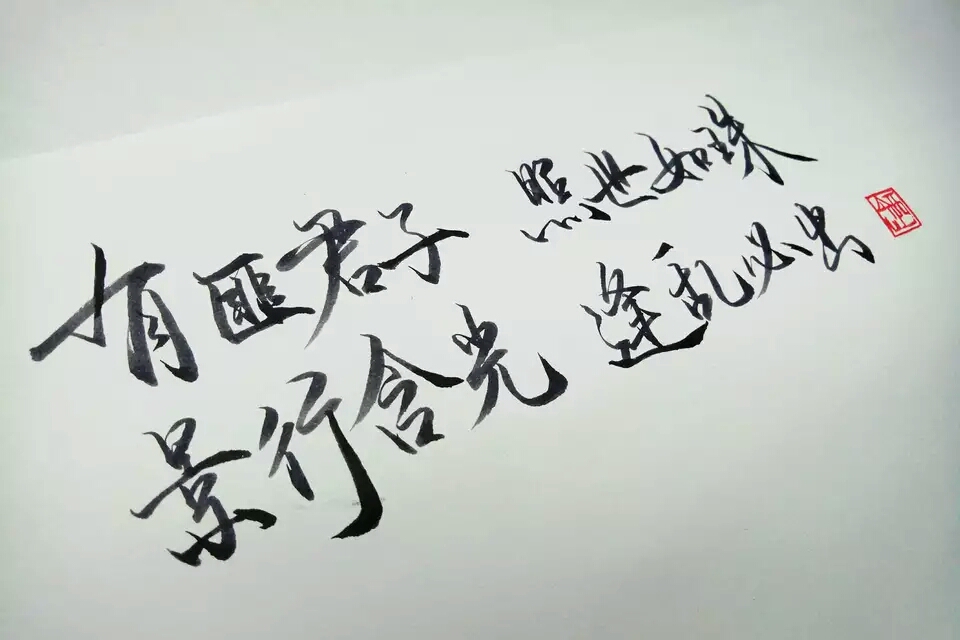 有匪君子 照世如珠
景行含光 逢乱必出